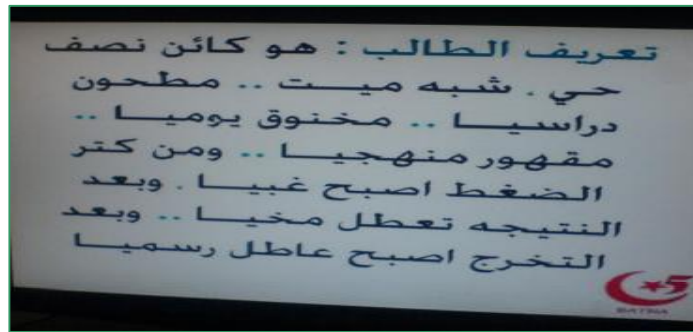 تعريف الطالب : هو كائن نصف
حي . شبه ميت .. مطحون
دراسيا .. مخنوق يوميا ..
مقهور منهجيا .. ومن كتر
الضغط اصبح غبيا . وبعد
النتيجه تعطل مخيا .. وبعد
التخرج اصبح عاطل رسميا
5
BATNA